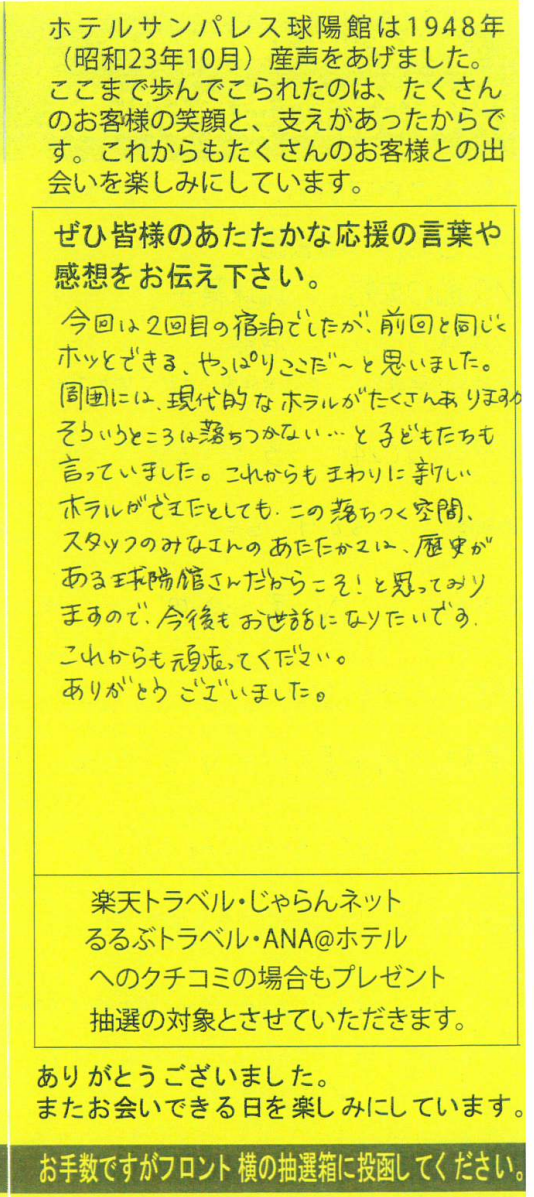 ホテルサンパレス球陽館は1948年
（昭和23年10月）産声をあげました。
ここまで歩んでこられたのは、たくさん
のお客様の笑顔と、支えがあったからで
す。これからもたくさんのお客様との出
会いを楽しみにしています。
ぜひ皆様のあたたかな応援の言葉や
感想をお伝え下さい。
今回は2回目の宿泊でしたが、前回と同じく
ホッとできる、やっぱりここだ〜と思いました。
周囲には、現代的なホテルがたくさんありますが
そういうところは落ちつかない…と子どもたちも
言っていました。これからもまわりに新しい
ホテルができたとしても、この落ちつく空間、
スタッフのみなさんのあたたかさは、歴史が
ある球陽館さんだからこそ！と思っており
ますので、今後もお世話になりたいです。
これからも頑張ってください。
ありがとうございました。
楽天トラベル・じゃらんネット
るるぶトラベル・ANA@ホテル
へのクチコミの場合もプレゼント
抽選の対象とさせていただきます。
ありがとうございました。
またお会いできる日を楽しみにしています。
お手数ですがフロント横の抽選箱に投函してください。